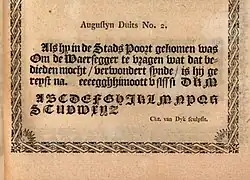 Augustyn Duits No. 2.
Als hy in de Stads Poort gekomen was
Om de Waersegger te vragen wat dat be-
dieden mocht / verwondert synde / is hij ge
reyst na. eeeegghjimoott v sissfi DKM
ABCDEFGHJKLMNPQR
STUDWXYZ
Chr. van Dyk sculpsit.